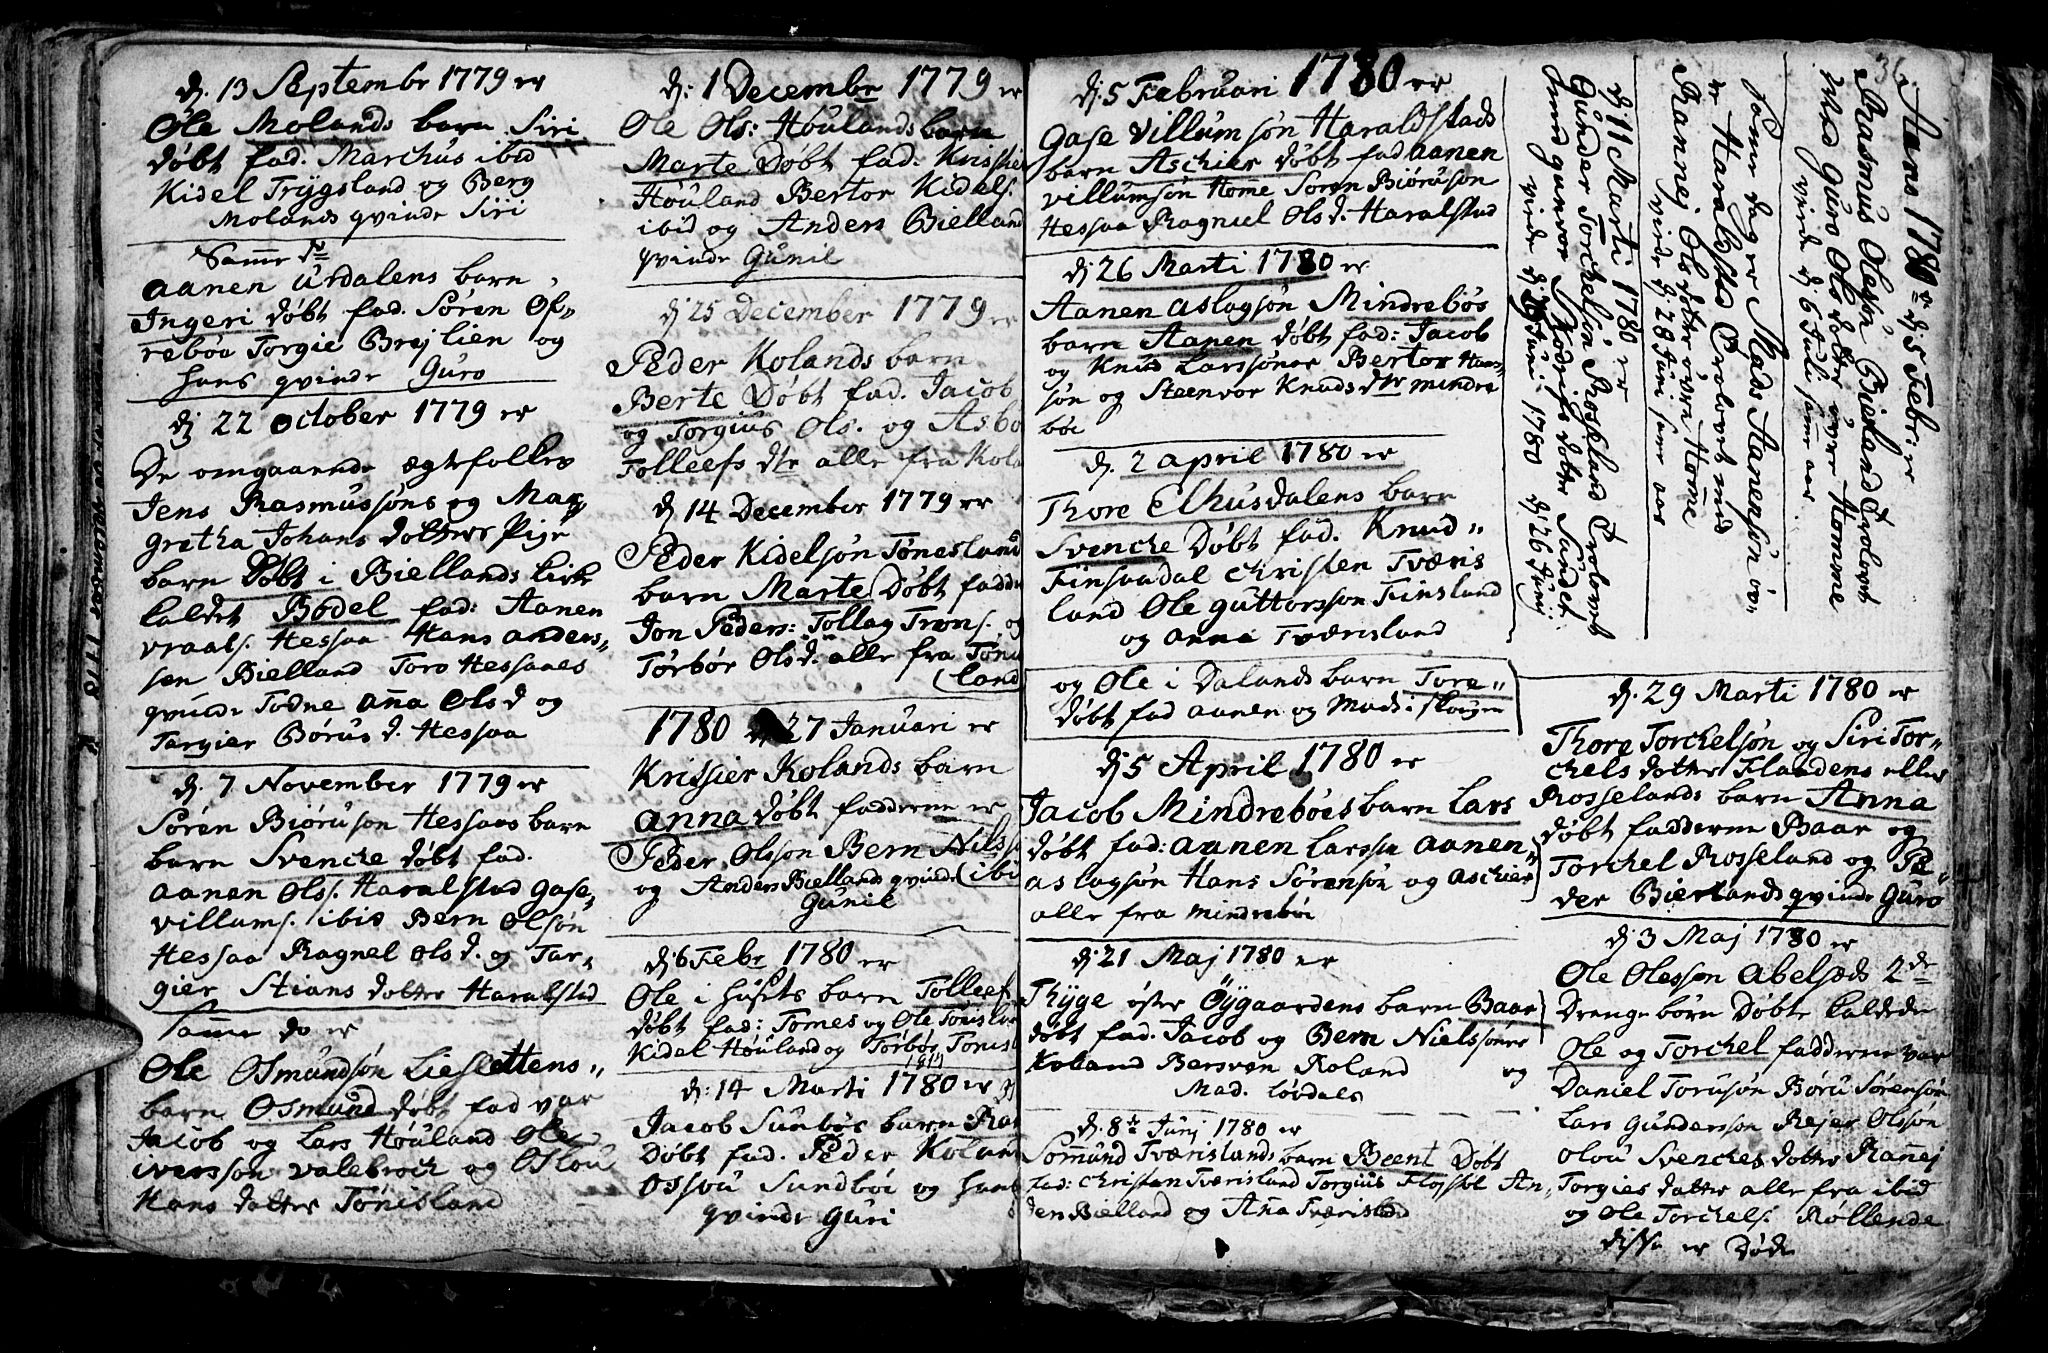 dj. 13 Septembr 1779 er
Ole Molands barn Siri
døbt fad. Marchus ibid
Kidel Trygsland og Berg
Molands qvinde Siri
Samme
Aanen Urdalens barn
Ingeri døbt fad. Søren Of-
rebøa Torgie Brejlien og
hans qvinde Guro
dj 22 October 1779 er
De omgaaende ægtefolkes
Jens Rasmussøns og Mar
gretha Johans dotters Pige
barn Døbt i Biellands kirk
kaldet Bodel fad: Aanen
vraals. Hessaa Hans anders-
sen Bielland Toro Hessaaes
qvinde Todne aña Ols d og
Targier Børus d. Hessaa
dj. 7 November 1779 er
Søren Biørusøn Hessaas barn
barn Svenche døbt fad.
Aanen Ols. Haralstad Gase
villums. ibid Bern Olsøn
Hessaa Ragnel Ols d. og Tar-
gier Stians dotter Haralstad
Samme do er
Ole Osmundsøn Lieslettens
barn Osmund døbt fad var
Jacob og Lars Høuland Ole
iversson valebroch og Oslou
Hans dotter Tønisland
dj: 1 Decembr 1779 er
Ole Ols: Høulands barn
Marte Døbt fad. Krissie
Høuland Bertor Kidels.
ibid og Anders Bielland
qvinde Gunil
dj 25 December 1779 er
Peder Kolands barn
Berte Døbt fad. Jacob
og Torgius Ols. og Asbo
Tolleefs dtr alle fra Kola
dj 14 December 1779 er
Peder Kidelsøn Tønesland
barn Marte Døbt fadde
Jon Peders: Tollag Trons. og
Tørbør Ols d. alle fra Tønis
land
1780 dj 27 Januari er
Krissier Kolands barn
anna døbt fadderne er
Peder Olsson Bern Nilss
og Anders Biellands qvinde ibi
Gunil
dj 6 Febr 1780 er
Ole i husets barn Tolleef
døbt fad: Tomes og Ole Tønislan
Kidel Høuland og Tørbør Tønisl
dj: 14 Marti 1780 er
Jacob Sunbøe barn Ras
Døbt fad. Peder Kolan
ossou Sundbøe og hans
qvinde Guri
dj 5 Februari 1780 er
Gase Villumsøn Haraldstads
barn Aschier døbt fad Aanen
villumsøn Home Soren Biørusøn
Hessaa Ragniel Ols d. Haralstad
dj 26 Marti 1780 er
Aanen Aslagsøn Mindrebøs
barn Aanen døbt fad: Jacob
og Knud Larssøner Bertor Hans
søn og Steenvor Knuds dtr mindre
bøe
dj. 2 april 1780 er
Thore Elhusdalens barn
Svenche Døbt fad. Knud
Finsaadal Christen Tværis
land Ole guttorsson Finsland
og anna Tværisland
og Ole i Dalands barn Tore
døbt fad aanen og Mads i skougen
dj 5 April 1780 er
Jacob Mindrebøes barn Lars
døbt fad: aanen Larssøn aanen
aslagsøn Hans Sørensøn og aschier
alle fra mindrebøe
dj 21 Maj 1780 er
Thyge øster Øygaardens barn Baar
døbt fad. Jacob og Bern Nielssøner
Koland Bersven Roland og
Mad. Løvdales
dj. 8de Junj 1780 er
Somund Tværislands barn Beent Døbt
fad: christen Tværisland Torgius Flottet An-
den Bielland og Aña Tværisland
36
Aano 1780 dj 5 Febr: er
Rasmus Olessøn Bieland Trolovet
Med Guro Ols dotter øvre Homme
viede dj 6 Juli samme aar
Samme dag er Mads Aanensøn øv:
re Haralsted Trolovet med
Rannej Ols dotter øvre Home
viede dj 28 Juni same aar
dj 11 Marti 1780 er
Gunder Torchelsøn Rosseland Trolovet
med gunvor Skodrifs dotter Sundet
viede dj 26 Juni 1780 dj 26 Junij
dj. 29 Marti 1780 er
Thore Torchelsøn og Siri Tor-
chels dotter Flaadens eller
Rosselands barn Anna
døbt fadderne Baar og
Torchel Rosseland og Pe-
der Bierlands qvinde Guro
dj 3 Maj 1780 er
Ole Olesson Abelsøds 2de
Drenge børn Døbte kaldede
Ole og Torchel fadderne var
Daniel Torusøn Børu Sørensøn
Lars Gundersson Rejer Olssøn
olou Svenches dotter Rañej
Torgies datter alle fra ibid
og Ole Torchels. Røllende
disse er Døde